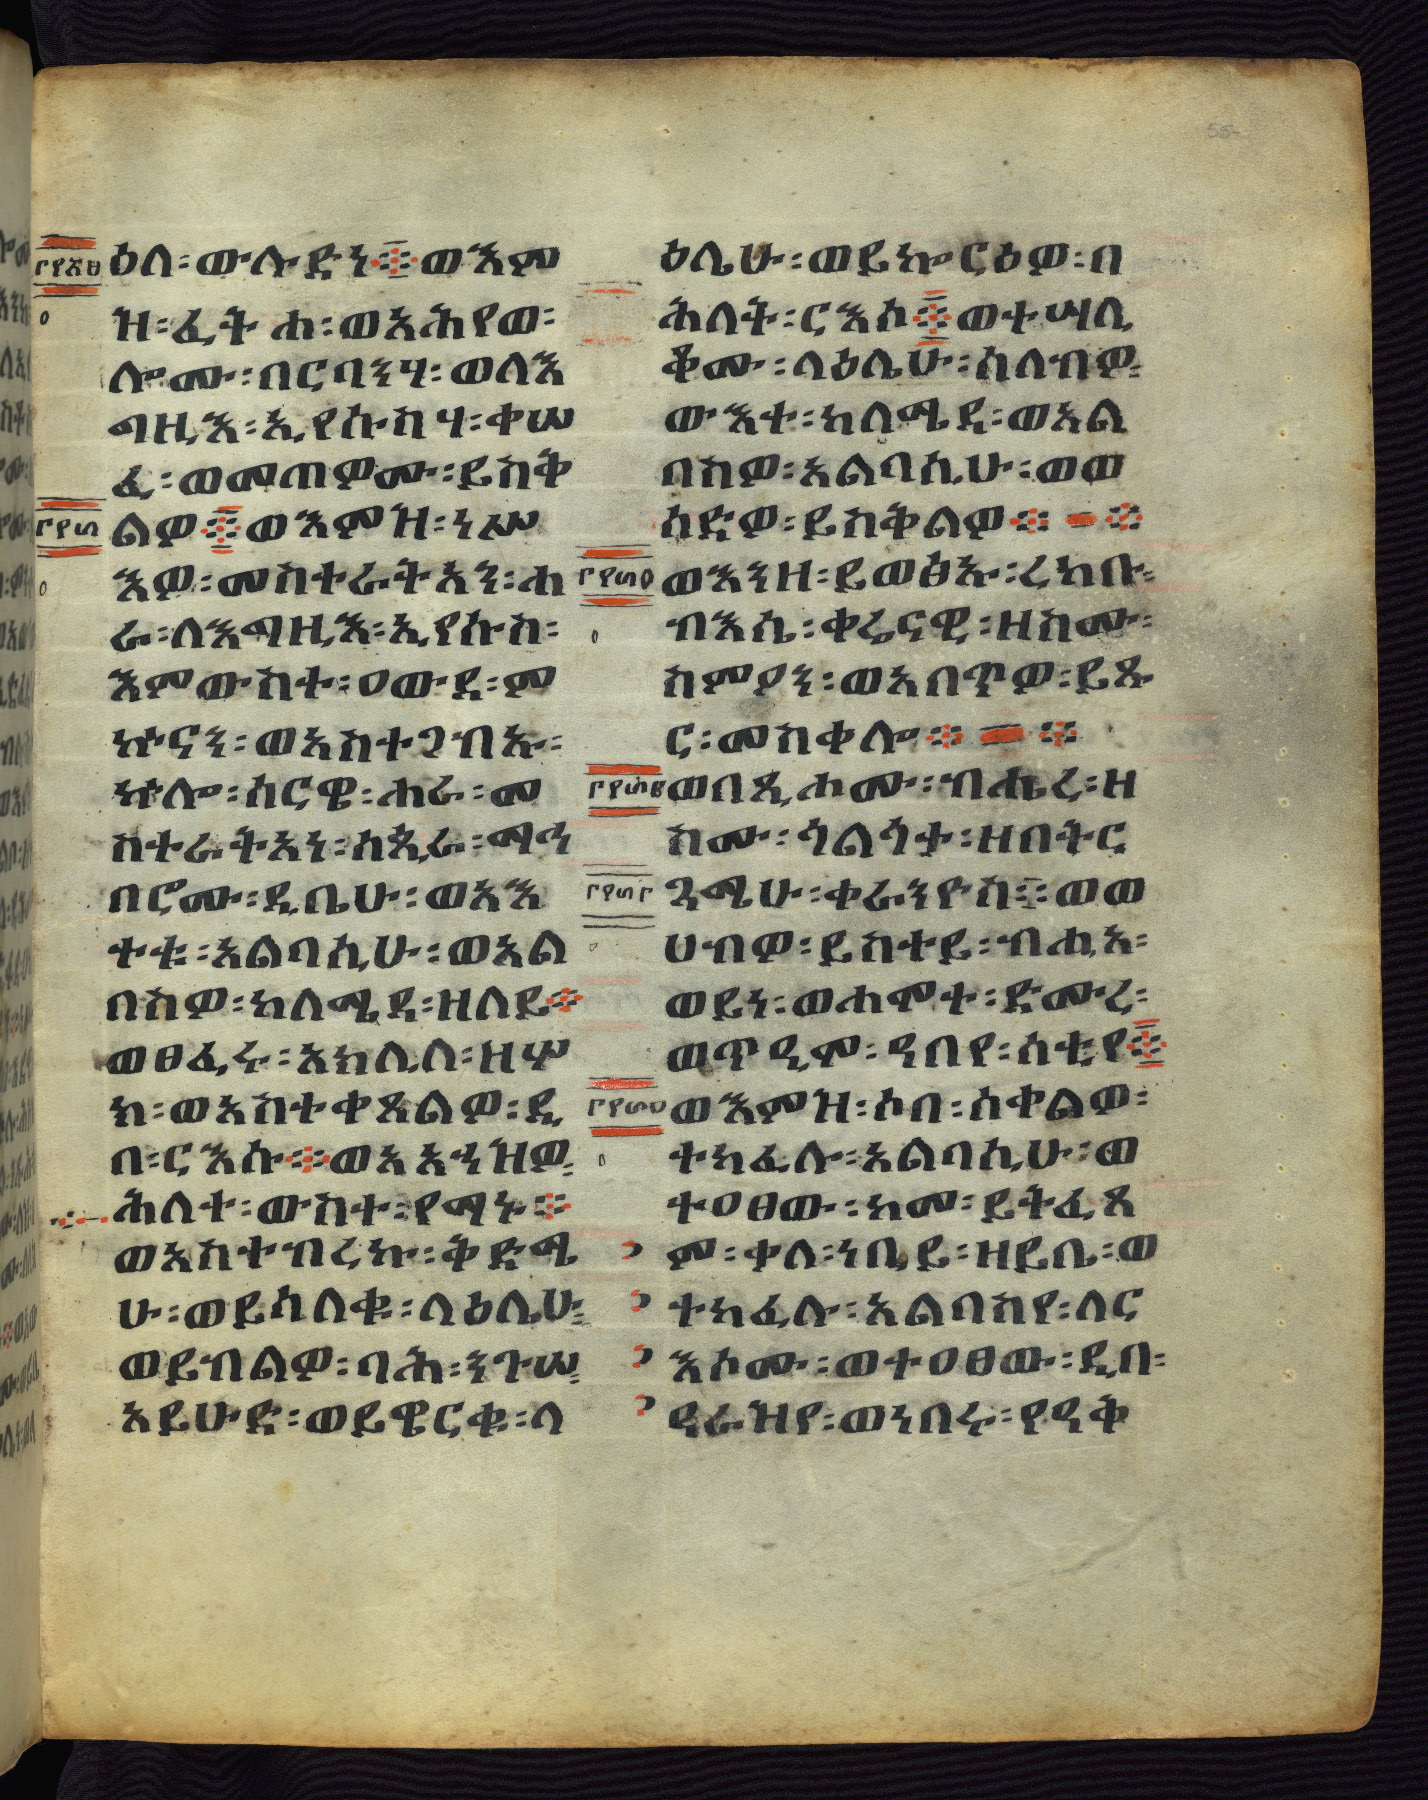 ዕለ፡ውሉድነ፨ወእም
ዝ፡ፈትሐ፡ወአሕየወ፡
ሎሙ፡በርባንሃ፡ወለእ
ግዚእ፡ኢየሱስሃ፡ቀሠ
ፈ፡ወመጠዎሙ፡ይስቅ
ልዎ፨ወእምዝ፡ነሥ
እዎ፡መስተራትአን፡ሐ
ራ፡ለእግዚእ፡ኢየሱስ፡
እምውስተ፡ዐውደ፡ም
ኵናን፡ወአስተጋብኡ፡
ኵሎ፡ሰርዌ፡ሐራ፡መ
ስተራትአነ፡ሰጲራ፡ማኅ
በሮሙ፡ዲቤሁ፡ወአእ
ተቱ፡አልባሲሁ፡ወአል
በስዎ፡ከለሜዳ፡ዘለይ፨
ወፀፈሩ፡አክሊለ፡ዘሦ
ክ፡ወአስተቀጸልዎ፡ዲ
በ፡ርእሱ፨ወአአኀዝዎ፡
ሕለተ፡ውስተ፡የማኑ፨
ወአስተብረኩ፡ቅድሜ
ሁ፡ወይሳለቁ፡ላዕሌሁ፡
ወይብልዎ፡ባሕ፡ንጉሠ፡
አይሁድ፡ወይዌርቁ፡ላ
ዕሌሁ፡ወይኰርዕዎ፡በ
ሕለት፡ርእሶ፨ወተሣሊ
ቆሙ፡ላዕሌሁ፡ሰለብዎ፡
ውእተ፡ከለሜዳ፡ወአል
በስዎ፡አልባሲሁ፡ወወ
ሰድዎ፡ይስቅልዎ፨ ፨
ወእንዘ፡ይወፅኡ፡ረከቡ፡
ብእሴ፡ቀሬናዊ፡ዘስሙ፡
ስምዖን፡ወአበጥዎ፡ይጹ
ር፡መስቀሎ፨ ፨
ወበጺሖሙ፡ብሔረ፡ዘ
ስሙ፡ጎልጎታ፡ዘበትር
ጓሜሁ፡ቀራንዮስ፡፡ወወ
ሀብዎ፡ይስተይ፡ብሒአ፡
ወይነ፡ወሐሞተ፡ድሙረ፡
ወጥዒሞ፡ዓበየ፡ሰቲየ፨
ወእምዝ፡ሶበ፡ሰቀልዎ፡
ተካፈሉ፡አልባሲሁ፡ወ
ተዐፀው፡ከመ፡ይትፈጸ
ም፡ቀለ፡ነቢይ፡ዘይቤ፡ወ
ተካፈሉ፡አልባስየ፡ለር
እሶሙ፡ወተዐፀው፡ዲበ፡
ዓራዝየ፡ወነበሩ፡የዓቅ